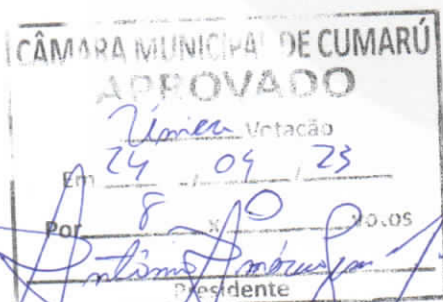 CÂMARA MUNICIPAL DE CUMARÚ
APROVADO
Única Votação
Em 24 / 04 / 23
Por 8 x 0 Votos
Antônio
Presidente